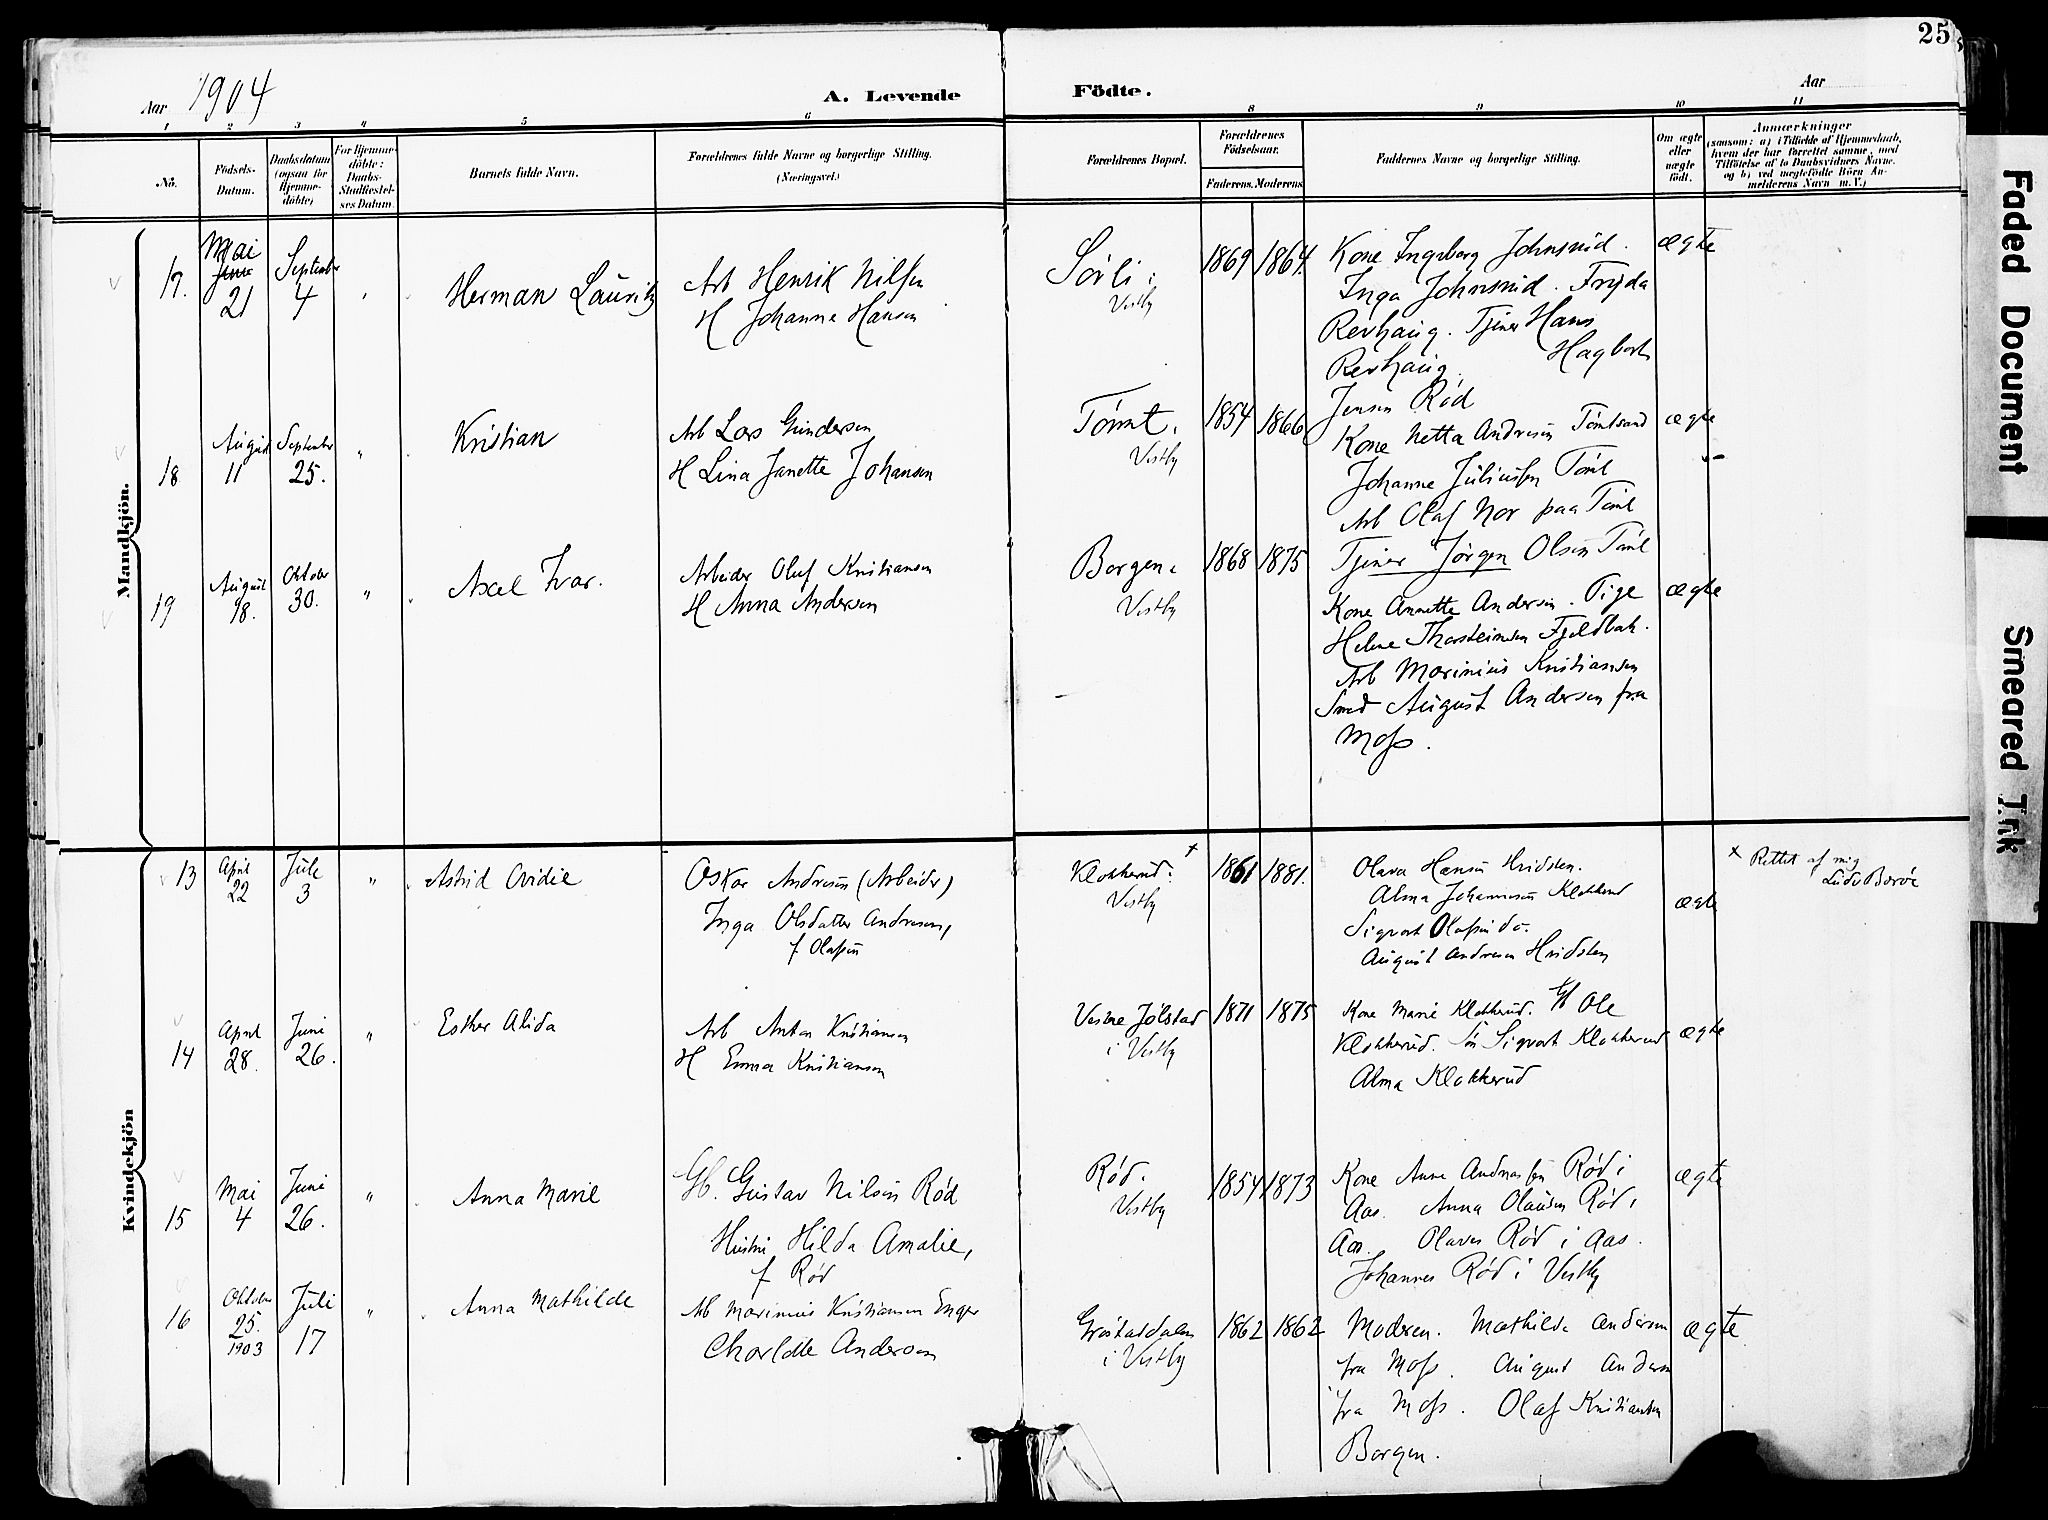 25
Aar 1904
A. Levende Födte.
Aar
1 2 3 4 5 6 8 9 10 11
No.
Födsels-
Datum.
Daabsdatum
(ogsaa for
Hjemme-
döbte)
For Hjemme-
döbte:
Daabs-
Stadfæstel-
ses Datum.
Barnets fulde Navn.
Forældrenes fulde Navne og borgerlige Stilling.
(Næringsvei.)
Forældrenes Bopæl.
Forældrenes
Födselsaar.
Faderens. Moderens.
Faddernes Navne og borgerlige Stilling.
Om ægte
eller
uægte
födt.
Anmærkninger
(saasom: a) i Tilfælde af Hjemmedaab,
hvem der har forrettet samme, med
Tilföielse af to Daabsvidners Navne.
og b) ved uægtefödte Börn An-
melderens Navn m. V.)
Mandkjön.
17. Mai
Juni
21
September
4
"
Herman Lauritz
Arb Henrik Nilsen
H Johanne Hansen
Sørli i
Vestby
1869 1864
Kone Ingeborg Johnsrud.
Inga Johnsrud. Fryda
Revhaug. Tjener Hans
Hagbart
Revhaug.
ægte
18
August
11
September
25.
"
Kristian
Arb Lars Gundersen
H Lina Janette Johansen
Tømt.
Vestby
1854 1866
Jensen Rød
Kone Netta Andresen Tømtsand
Johanne Juliussen Tømt
Arb Olaf Nor paa Tømt
Tjener Jørgen Olsen Tømt
ægte
19
August
18.
Oktober
30.
"
Axel Ivar.
Arbeider Oluf Kristiansen
H Anna Andersen
Borgen i
Vestby
1868 1875
Kone Annette Andersen. Pige
Helene Thorsteinsen Fjeldbak.
Arb Marinius Kristiansen
Smed August Andersen fra
Moss.
ægte
Kvindekjön
13
April
22
Juli
3
"
Astrid Ovidie
Oskar Andresen (Arbeider)
Inga Olsdatter Andresen,
f Olafsen
Klokkerud. x
Vestby
1861 1881.
Olava Hansen Hvidsten.
Alma Johannesen Klokkerud
Sigvart Olafsen do.
August Andresen Hvidsten
ægte
x Rettet af mig
Ludv Barøe
14
April
28.
Juni
26.
"
Esther Alida
Arb Anton Kristiansen
H Emma Kristiansen
Vestre Jølstad
i Vestby
1871 1875
Kone Marie Klokkerud. Gb Ole
Klokkerud. Søn Sigvart Klokkerud
Alma Klokkerud
ægte
15
Mai
4
Juni
26.
"
Anna Marie
Gb. Gustav Nilsen Rød
Hustru Hilda Amalie,
f Rød
Rød.
Vestby
1854 1873
Kone Anne Andreassen Rød i
Aas. Anna Olausen Rød i
Aas. Olaves Rød i Aas.
Johannes Rød i Vestby
ægte
16
Oktober
25.
1903
Juli
17
"
Anna Mathilde
Arb Marinius Kristiansen Enger
Charlotte Andersen
i Vestby
1862 1862
Moderen. Mathilde Andersen
fra Moss. August Andersen
fra Moss. Olaf Kristiansen
Borgen.
ægte
Faded Document
Smeared Ink